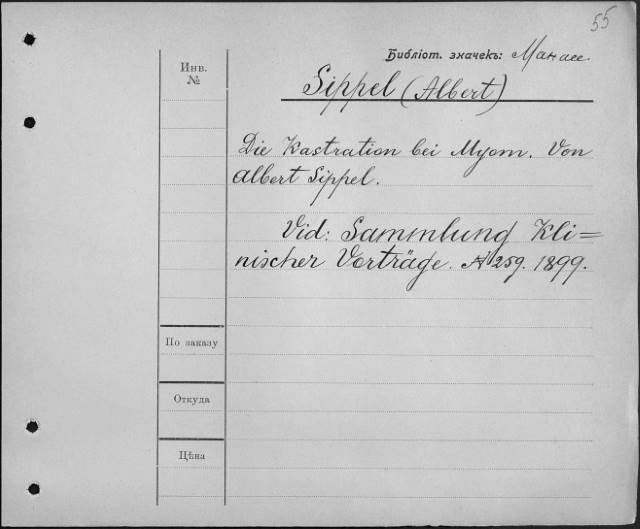 55
Библіот. значекъ: Манасе
Инв.
№
Sippel (Albert)
Die Kastration bei Myom. Von
Albert Sippel.
Vid: Sammlung Kli=
nischer Vorträge. № 259. 1899.
По заказу
Откуда
Цѣна